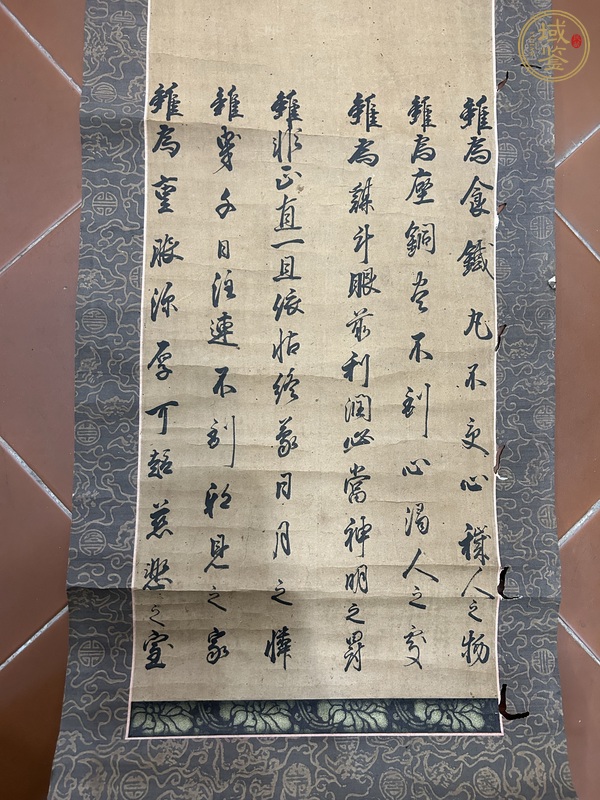 雖為食鐵丸不受心穢人之物
雖為座銅炎不到心濁人之處
雖為謀計眼前利潤必當神明之罸
雖非正直一旦依怙終蒙日月之憐
雖曳千日注連不到邪見之家
雖為重服深厚可趣慈悲之室
域鉴